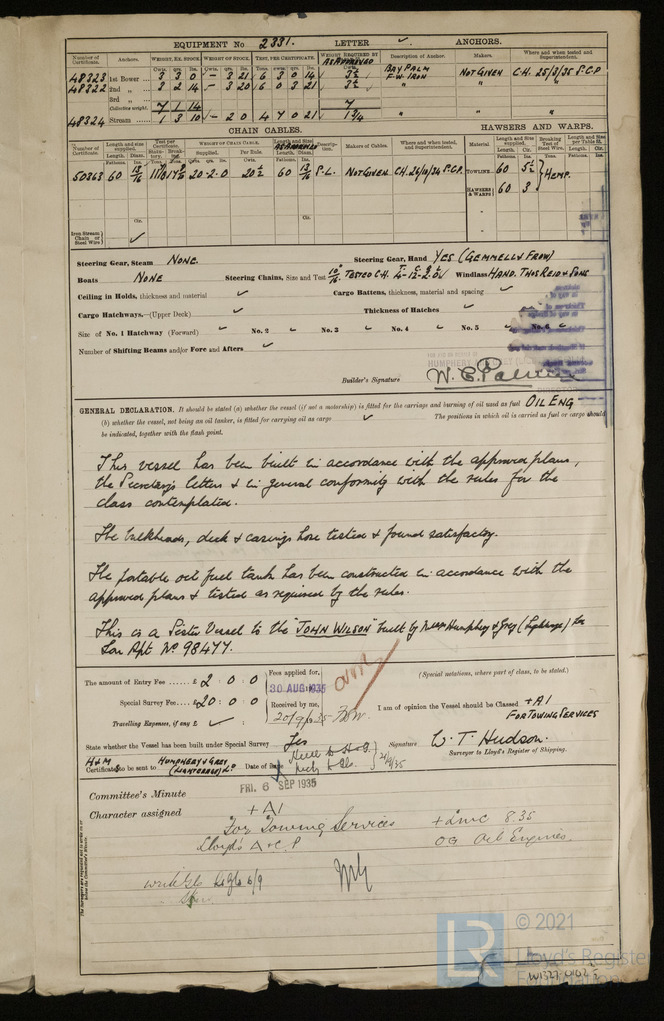 EQUIPMENT No 2331. LETTER ✓. ANCHORS.
Number of Certificate. Anchors. WEIGHT, EX. STOCK. WEIGHT OF STOCK. TEST, PER CERTIFICATE. WEIGHT REQUIRED BY AS APPROVED Description of Anchor. Makers. Where and when tested and Superintendent.
Cwts. qrs. lbs. Cwts. qrs. lbs. Tons. cwts. qrs. lbs. Cwts.
48323 1st Bower ... 3 3 0 – 3 21 6 3 0 14 3½ BAY PALM F.W. IRON NOT GIVEN C.H. 25/3/35 S.C.P
48322 2nd „ ... 3 2 14 – 3 20 6 0 3 21 3½ „ „ „
3rd „ ...
Collective weight. 7 1 14 7
48324 Stream ... 1 3 10 – 2 0 4 7 0 21 1¾ „ „ „
CHAIN CABLES. HAWSERS AND WARPS.
Number of Certificate. Length and size supplied. Test per Certificate. WEIGHT OF CHAIN CABLE. Length and Size AS APPROVED Description. Makers of Cables. Where and when tested, and Superintendent. Material Length and Size supplied. Breaking Test of Steel Wire. Length and Size per Table 31.
Length. Diam. Supplied. Per Rule. Length. Diam. Length. Cir. Length. Cir.
50363 60 13/16 20-2-0 20½ 60 13/16 S.L. NOT GIVEN C.H. 26/11/34 S.C.P. TOWLINE 60 5½ HEMP.
HAWSERS & WARPS 60 3
Iron Stream Chain or Steel Wire ✓
Steering Gear, Steam NONE. Steering Gear, Hand YES (GEMMELL & FROW)
Boats NONE Steering Chains, Size and Test 10/16 TESTED C.H. Windlass HAND. THOS REID & SONS
Ceiling in Holds, thickness and material ✓ Cargo Battens, thickness, material and spacing ✓
Cargo Hatchways.—(Upper Deck) ✓ Thickness of Hatches ✓
Size of No. 1 Hatchway (Forward) ✓ No. 2 ✓ No. 3 ✓ No. 4 ✓ No. 5 ✓ No. 6 ✓
Number of Shifting Beams and/or Fore and Afters ✓
FOR AND ON BEHALF OF
HUMPHERY
Builder's Signature W. C. Palmer
GENERAL DECLARATION. It should be stated (a) whether the vessel (if not a motorship) is fitted for the carriage and burning of oil used as fuel OIL ENG
(b) whether the vessel, not being an oil tanker, is fitted for carrying oil as cargo ✓ The positions in which oil is carried as fuel or cargo should
be indicated, together with the flash point.
This vessel has been built in accordance with the approved plans,
the Secretary's letters & in general conformity with the rules for the
class contemplated.
The bulkheads, deck & casings hose tested & found satisfactory.
The portable oil fuel tank has been constructed in accordance with the
approved plans & tested as required by the rules.
This is a Sister Vessel to the "JOHN WILSON" built by Messrs Humphery & Grey (Lighterage) Ltd
Lon Rpt No 98477.
The amount of Entry Fee ...... £ 2 : 0 : 0 Fees applied for, (Special notations, where part of class, to be stated.)
30 AUG 1935
Special Survey Fee .... £ 20 : 0 : 0 Received by me, I am of opinion the Vessel should be Classed +A1
Travelling Expenses, if any £ ✓ 20/9/1935 FOR TOWING SERVICES
State whether the Vessel has been built under Special Survey Yes Signature W. T. Hudson.
Surveyor to Lloyd's Register of Shipping.
H&M Certificates to be sent to HUMPHERY & GREY (LIGHTERAGE) Ld Date of
Committee's Minute FRI. 6 SEP 1935
Character assigned +A1
For Towing Services +LMC 8.35
Lloyd's A & C P OG Oil Engines.
write Gls 6/9
© 2021
LR Lloyd's Register Foundation
W1327-0102